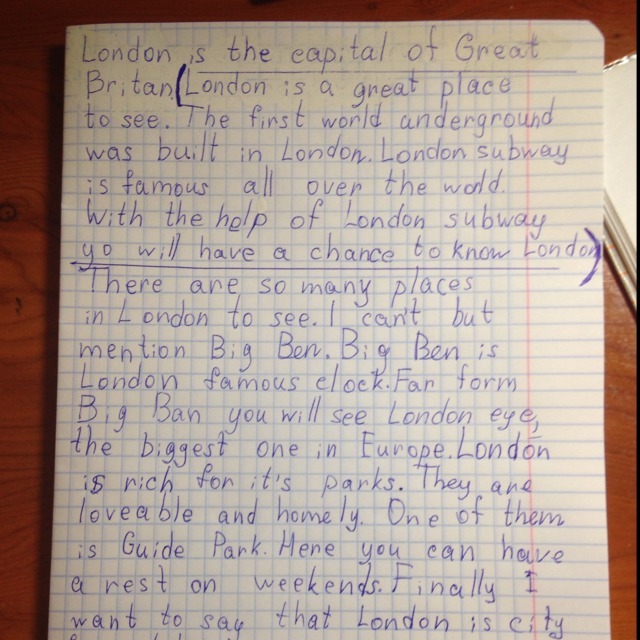 London is the capital of Great
Britan.(London is a great place
to see. The first world anderground
was built in London. London subway
is famous all over the wold.
With the help of London subway
yo will have a chance to know London)
There are so many places
in London to see. I can't but
mention Big Ben. Big Ben is
London famous clock. Far form
Big Ban you will see London eye,
the biggest one in Europe. London
is rich for it's parks. They are
loveable and homely. One of them
is Guide Park. Here you can have
a rest on weekends. Finally I
want to say that London is city